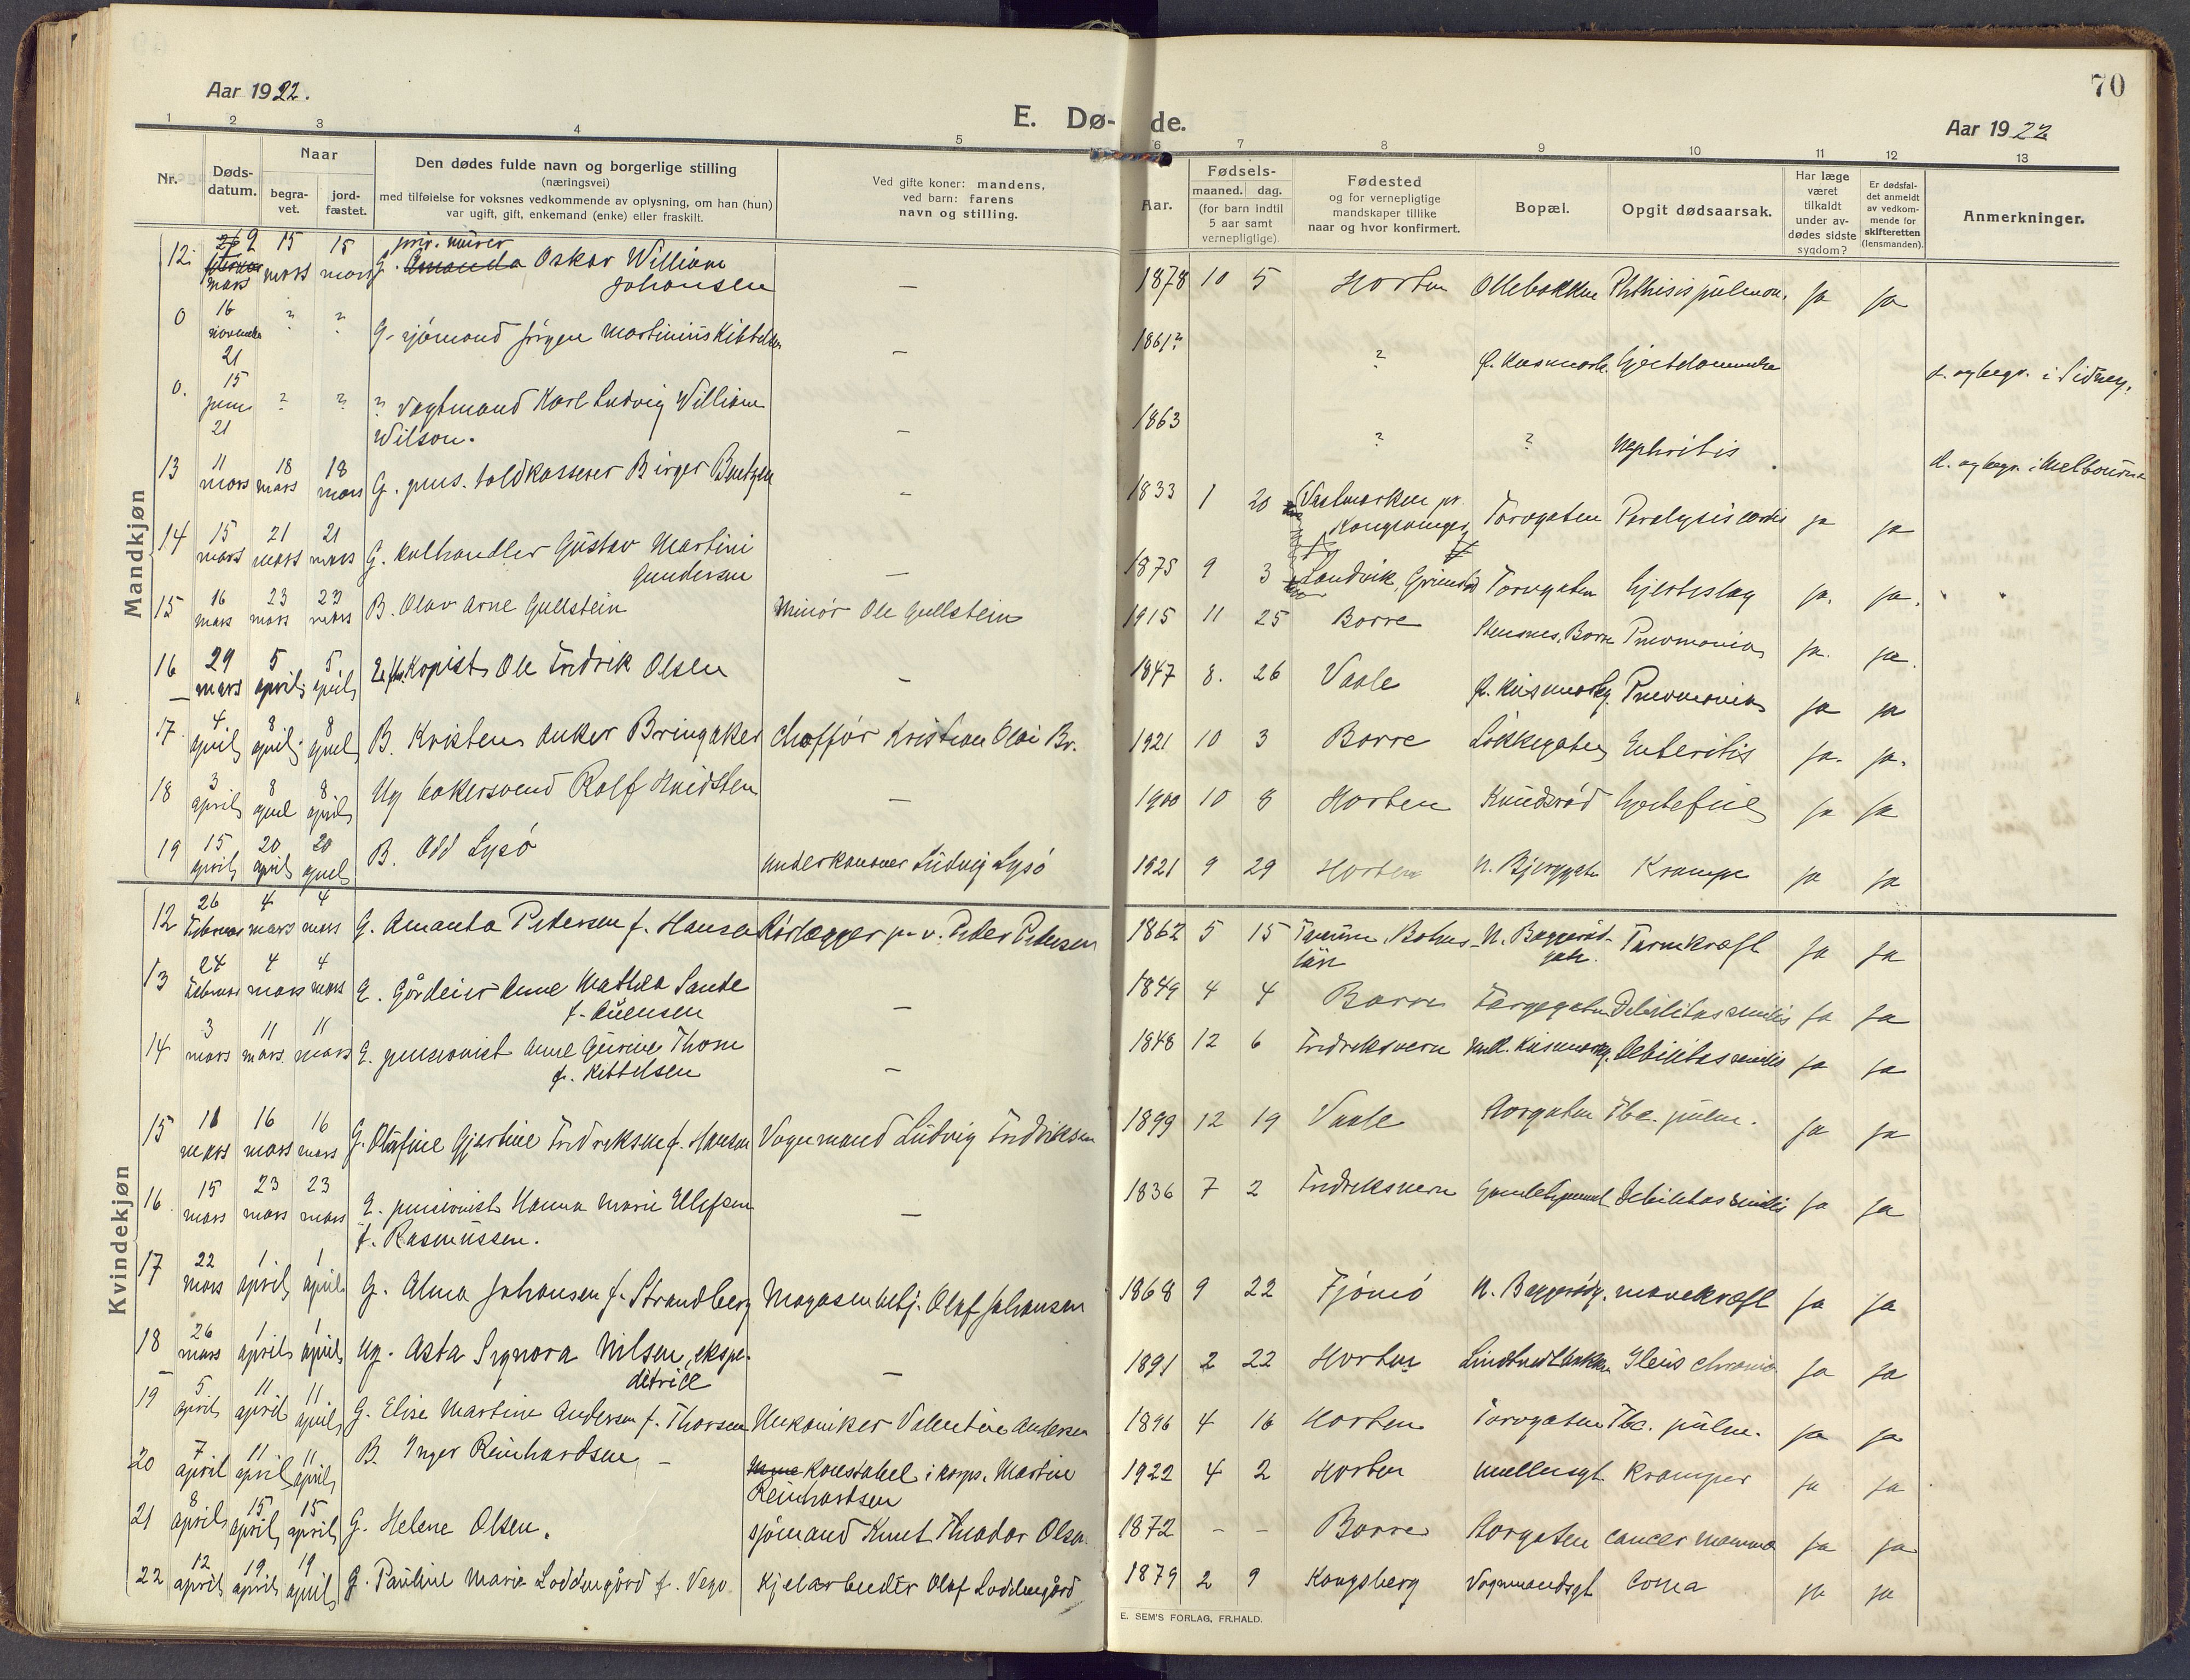 Aar 1922.
E. Dø- de.
Aar 1922
70
1 2 3 4 5 6 7 8 9 10 11 12 13
Nr.
Døds-
datum.
Naar
begra-
vet.
jord-
fæstet.
Den dødes fulde navn og borgerlige stilling
(næringsvei)
med tilføielse for voksnes vedkommende av oplysning, om han (hun)
var ugift, gift, enkemand (enke) eller fraskilt.
Ved gifte koner: mandens,
ved barn: farens
navn og stilling.
Aar.
Fødsels-
maaned. dag.
(for barn indtil
5 aar samt
vernepligtige)
Fødested
og for vernepligtige
mandskaper tillike
naar og hvor konfirmert.
Bopæl.
Opgit dødsaarsak.
Har læge
været
tilkaldt
under av-
dødes sidste
sygdom?
Er dødsfal-
det anmeldt
av vedkom-
mende for
skifteretten
(lensmanden).
Anmerkninger.
Mandkjøn
12. 9 mars 15 mars 15 mars G. Amanda Oskar William Johansen — 1878 10 5 Horten Ollebakken Phthisis pulmon. ja ja
0 16 november 21 ? ? G. sjømand Jörgen Martinius Kittelsen — 1861? ? d. og begr. i Sidney.
0. 15 juni 21 ? ? ? Vagtmand Karl Ludvig William Wilson. — 1863 ? ? Nephritis d. og begr. i Melbourne
13 11 mars 18 mars 18 mars G. pens. toldkasserer Birger Bentzen — 1833 1 20 Vestmarken pr. Kongsvinger Torvgaten Paralysis cordis ja ja
14 15 mars 21 mars 21 mars G. kulhandler Gustav Martini Gundersen — 1875 9 3 Landvik, Grimstad Torvgaten hjerteslag ja. ja.
15 16 mars 23 mars 23 mars B. Olav Arne Gullstein Minör Ole Gullstein 1915 11 25 Borre Stensnes, Borre Pneumonia ja. ja.
16 29 mars 5 april 5 april Kopist Ole Fredrik Olsen — 1847 8. 26 Vaale Pneumonia ja ja
17. 4 april 8 april 8 april B. Kristen Anker Bringaker Chafför Kristian Olai Br. 1921 10 3 Borre Løkkegaten Enteritis ja. ja.
18 3 april 8 april 8 april Ug bakersvend Rolf Hvidsten — 1900 10 8 Horten Knudsröd hjertefeil ja ja
19 15 april 20 april 20 april B. Odd Lysö Underkanoner Ludvig Lysö 1921 9 29 Horten N. Bjerggate Krampe ja ja
Kvindekjøn
12 26 Februar 4 mars 4 mars G. Amanda Petersen f. Hansen Rörlægger Peder Petersen 1862 5 15 Bohus- län N. Baggeröd- gate. Tarmkræft ja ja
13 24 Februar 4 mars 4 mars E. Gårdeier Anne Mathea Sande f. Auensen — 1849 4 4 Borre Debilitas senilis ja ja
14 3 mars 11 mars 11 mars E. pensionist Anne Gurine Thom f. Kittelsen — 1848 12 6 Fredriksvern Debilitas senilis ja ja
15 11 mars 16 mars 16 mars G. Olufine Gjertine Fredriksen f. Hansen Vognmand Ludvig Fredriksen 1899 12 19 Vaale Storgaten Tbc. pulm. ja ja
16. 15 mars 23 mars 23 mars E. pensionist Hanna Marie Ellefsen f. Rasmussen. — 1836 7 2 Fredriksvern Gamlehjemmet Debilitas senilis ja ja
17 22 mars 1 april 1 april G. Alma Johansen f. Strandberg Magasinarbj. Olaf Johansen 1868 9 22 Tjömö N. Baggerödg. mavekræft ja ja
18 26 mars 1 april 1 april Ug. Asta Signora Nilsen, ekspe- ditrice — 1891 2 22 Horten Ileus chronica ja ja
19 5 april 11 april 11 april G. Elise Martine Andersen f. Thorsen Mekaniker Valentin Andersen 1896 4 16 Horten Torvgaten Tbc. pulm. ja ja
20 7 april 11 april 11 april B. Inger Reinhardsen — Konstabel i korps. Martin Reinhardsen 1922 4 2 Horten Møllersgt. Kramper ja ja
21 8 april 15 april 15 april G. Helene Olsen. sjömand Knut Theodor Olsen 1872 - - Borre Storgaten cancer mamma ja ja
22 12 april 19 april 19 april G. Pauline Marie Loddengård f. Vego Kjelarbeider Olaf Loddengård 1879 2 9 Kongsberg Vognmandsgt. Coma ja ja
E. SEM'S FORLAG, FR.HALD.